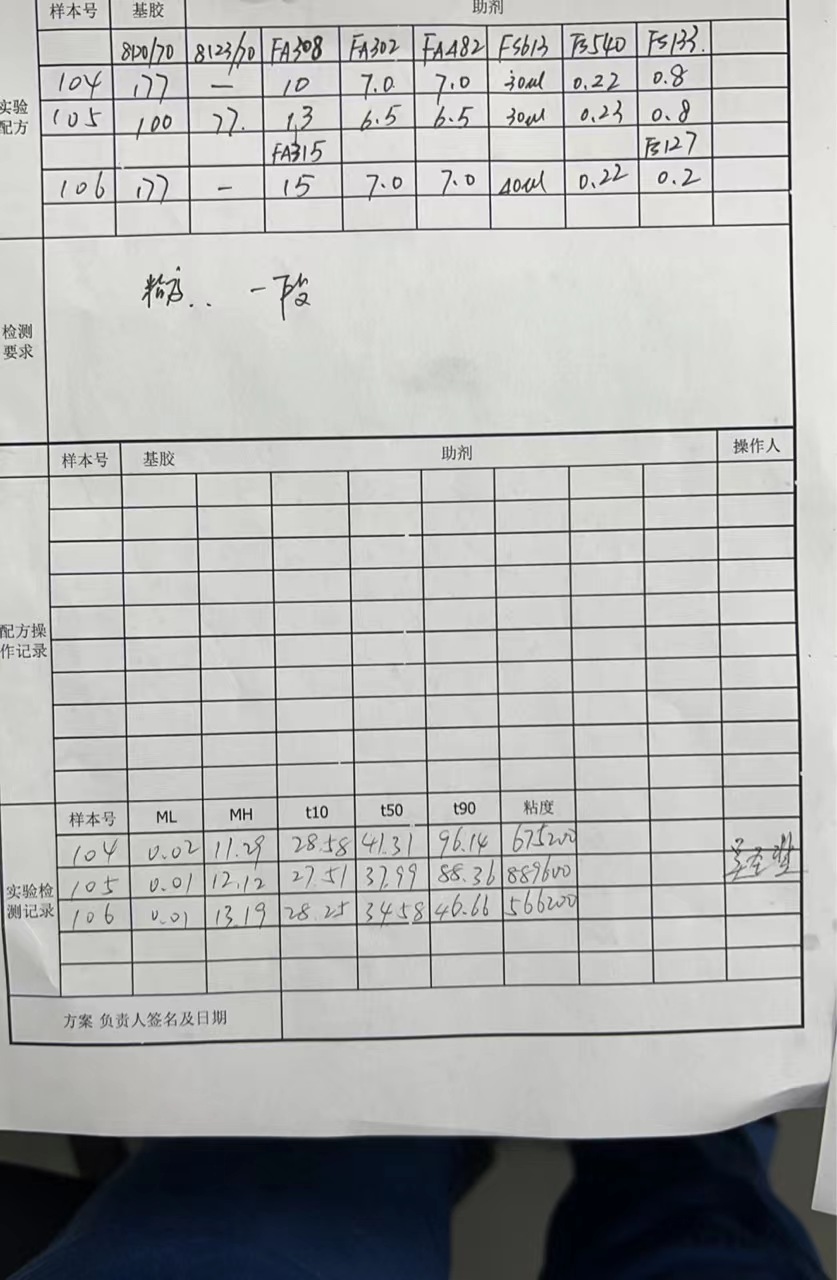 样本号 基胶 助剂
8120/70 8123/70 FA308 FA302 FAA82 FS613 FS540 FS133.
实验配方
104 177 — 10 7.0 7.0 30ul 0.22 0.8
105 100 77. 13 6.5 6.5 30ul 0.23 0.8
FA315 FS127
106 177 — 15 7.0 7.0 40ul 0.22 0.2
检测要求
一段
样本号 基胶 助剂 操作人
配方操作记录
样本号 ML MH t10 t50 t90 粘度
实验检测记录
104 0.02 11.29 28.58 41.31 96.14 675200
105 0.01 12.12 27.51 37.99 88.36 889600
106 0.01 13.19 28.25 34.58 46.66 566200
方案 负责人签名及日期